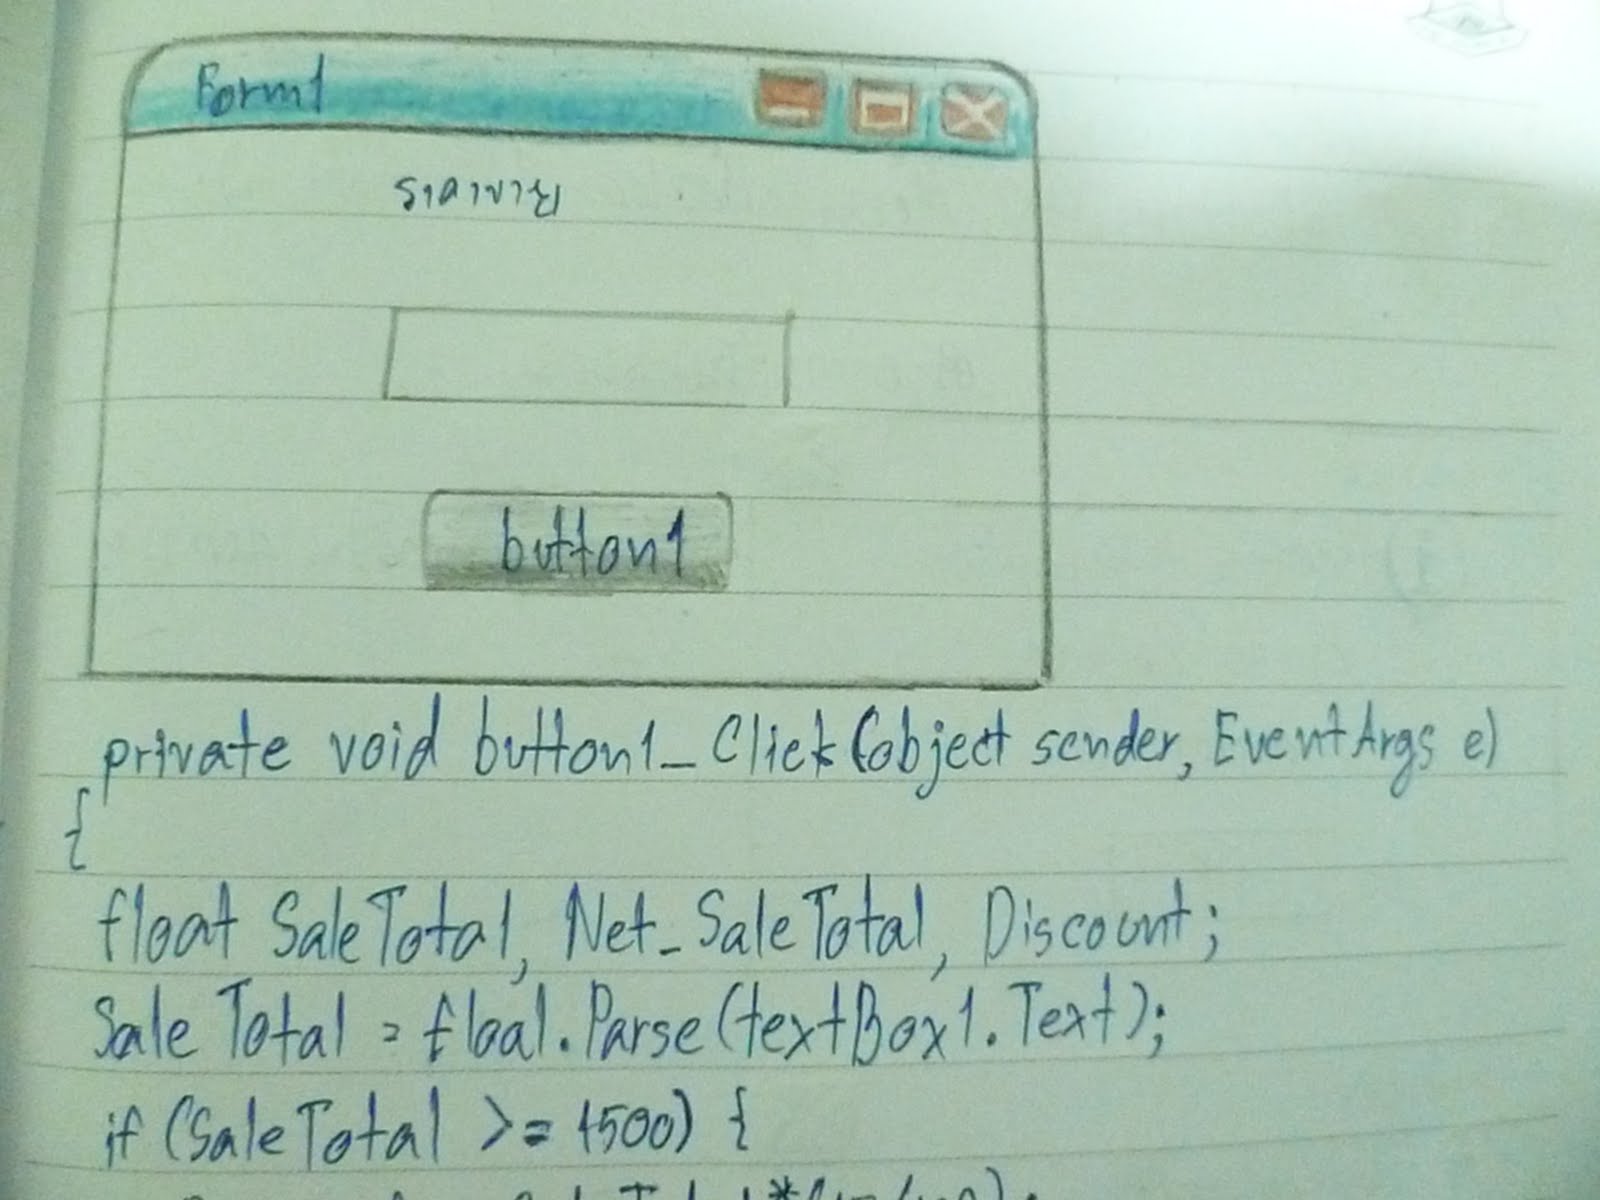 Form1
ราคาขาย
button1
private void button1_Click(object sender, EventArgs e)
{
float SaleTotal, Net_SaleTotal, Discount;
SaleTotal = floal.Parse(textBox1.Text);
if (SaleTotal >= 1500) {